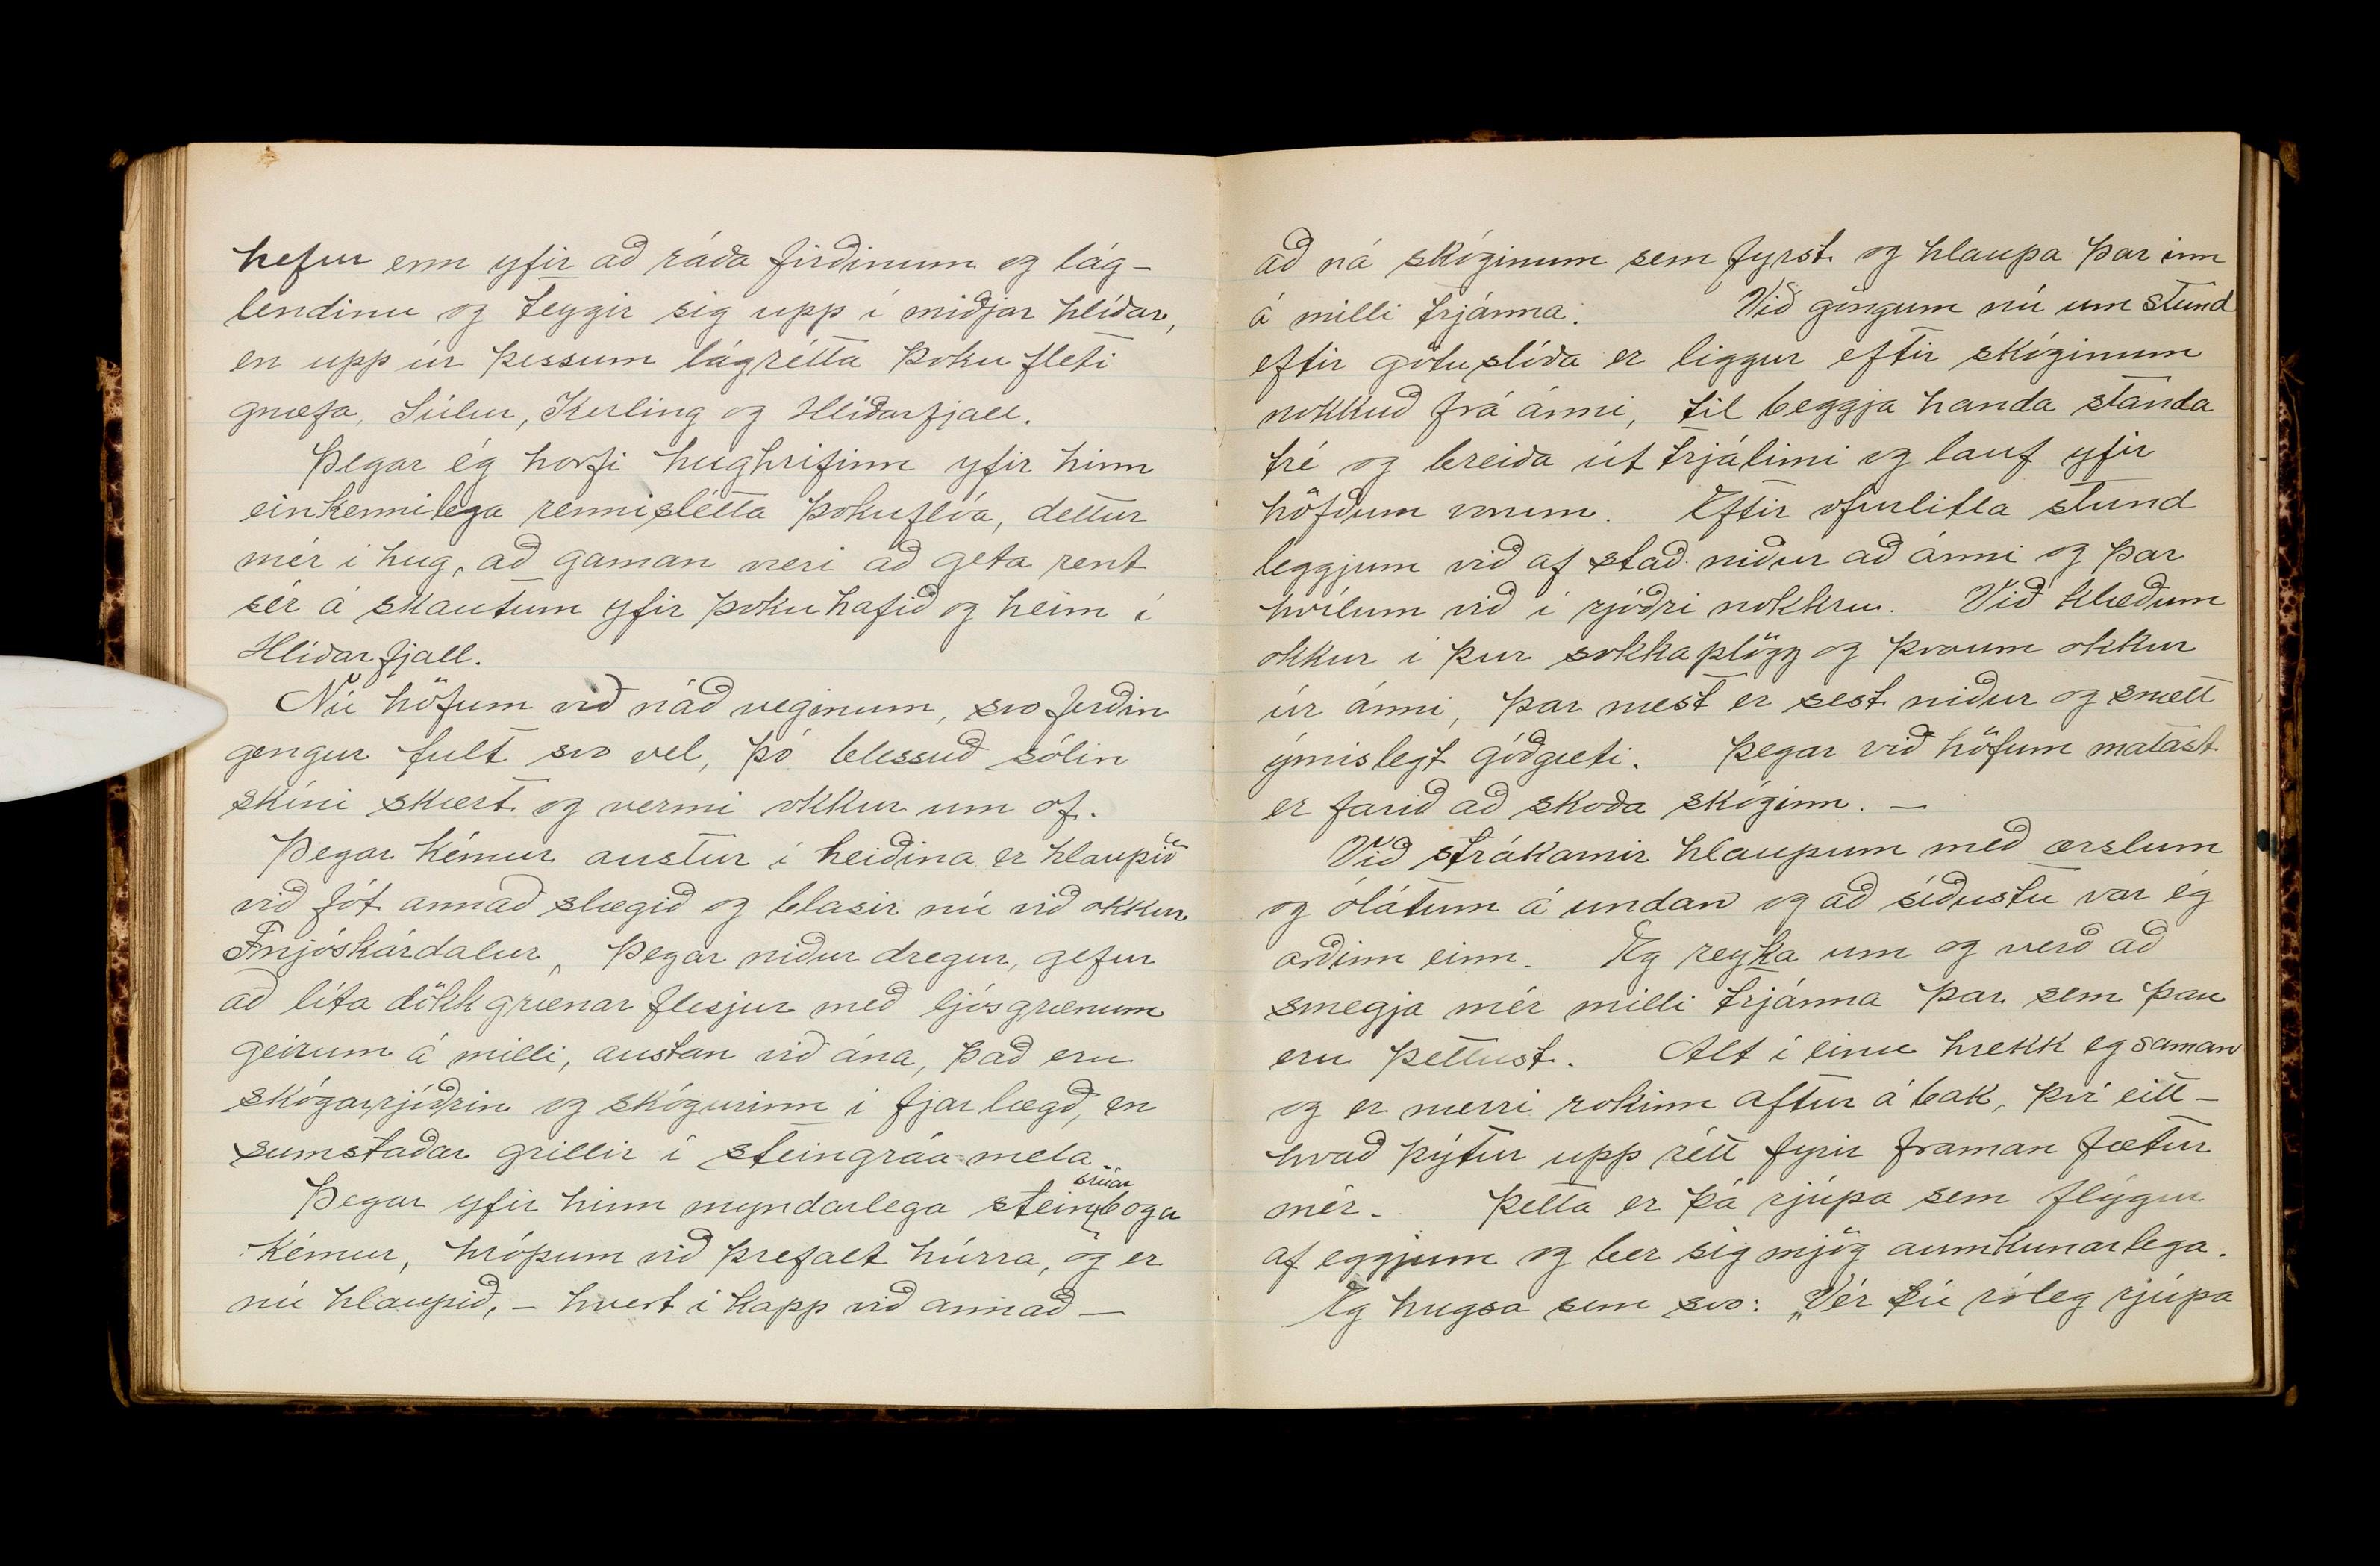 hefur enn yfir að ráða firðinum og lág-
lendinu og teygir sig upp í miðjar hlíðar,
en upp úr þessum lágrétta þoku fleti
gnæfa, Súlur, Kerling og Hlíðarfjall.
Þegar ég horfi hughrifinn yfir hinn
einkennilega rennislétta þokuflóa, dettur
mér í hug, að gaman væri að geta rent
sér á skautum yfir þokuhafið og heim í
Hlíðarfjall.
Nú höfum við náð veginum, svo ferðin
gengur fult svo vel, þó blessuð sólin
skíni skært og vermi okkur um of.
Þegar kémur austur í heiðina er hlaupið
við fót annað slægið og blasir nú við okkur
Fnjóskárdalur, Þegar niður dregur, gefur
að líta dökkgrænar flesjur með ljósgrænum
geirum á milli, austan við ána, það eru
skógarrjóðrin og skógurinn í fjarlægð, en
sumstaðar grillir í steingráa mela.
Þegar yfir hinn myndarlega steinbrúarboga
kémur, hrópum við þrefalt húrra, og er
nú hlaupið, – hvert í kapp við annað –
að ná skóginum sem fyrst og hlaupa þar inn
á milli trjánna. Við göngum nú um stund
eftir götuslóða er liggur eftir skóginum
nokkuð frá ánni, til beggja handa standa
tré og breiða út trjálimi og lauf yfir
höfðum vorum. Eftir ofurlitla stund
leggjum við af stað niður að ánni og þar
hvílum við í rjóðri nokkru. Við klæðum
okkur í þur sokkaplögg og þvoum okkur
úr ánni, þar næst er sest niður og snætt
ýmislegt góðgæti. Þegar við höfum matast
er farið að skoða skóginn. –
Við strákarnir hlaupum með ærslum
og ólátum á undan og að síðustu var ég
orðinn einn. Eg reyka um og verð að
smegja mér milli trjánna þar sem þau
eru þettust. Alt í einu hrekk eg saman
og er nærri rokinn aftur á bak, því eitt-
hvað þýtur upp rétt fyrir framan fætur
mér. Þetta er þá rjúpa sem flýgur
af eggjum og ber sig mjög aumkunarlega.
Eg hugsa sem svo: „Vér þú róleg rjúpa